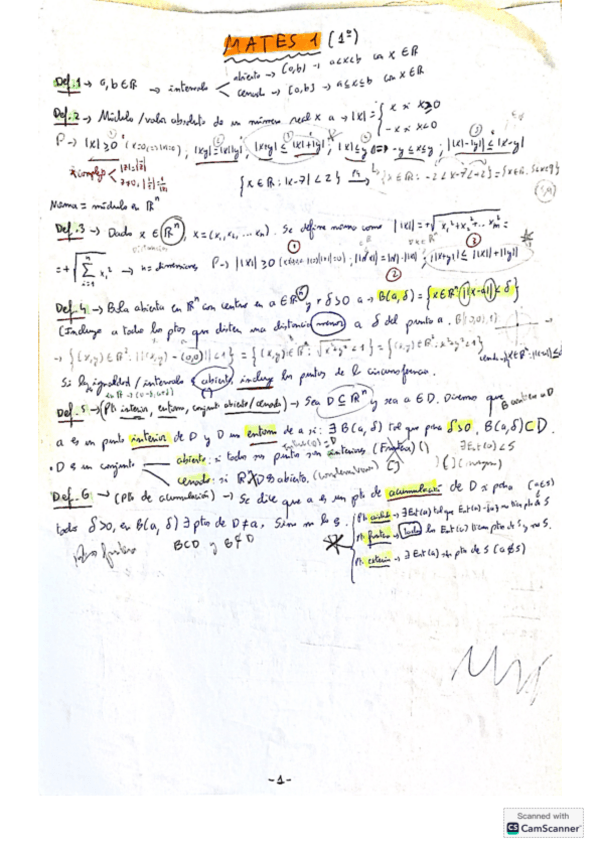 MATES 1 (1º)
Def. 1 → a, b ∈ ℝ → intervalo
abierto → (a,b) → a<x<b con x ∈ ℝ
cerrado → [a,b] → a≤x≤b con x ∈ ℝ
Def. 2 → Módulo / valor absoluto de un número real x a → |x| = { x si x≥0
-x si x<0
P → |x| ≥ 0 (x=0 ⇔ |x|=0) ; |xy| = |x||y| ; |x+y| ≤ |x|+|y| ; |x| ≤ y ⇔ -y ≤ x ≤ y ; ||x|-|y|| ≤ |x-y|
{x ∈ ℝ : |x-7| < 2} → {x ∈ ℝ : -2 < x-7 < 2} = {x ∈ ℝ : 5<x<9}
Norma = módulo en ℝⁿ
Def. 3 → Dado x ∈ ℝⁿ, x = (x₁, x₂, ... xₙ). Se define norma como ||x|| = +√x₁²+x₂²+... xₙ² =
= +√∑ xᵢ² → n = dimensiones P → ||x|| ≥ 0 ; ||x+y|| ≤ ||x|| + ||y||
Def. 4 → Bola abierta en ℝⁿ con centro en a ∈ ℝⁿ y r δ>0 a → B(a, δ) = {x ∈ ℝⁿ : ||x-a|| < δ}
(Incluye a todos los ptos que disten una distancia menor a δ del punto a. B((0,0),1)
→ {(x,y) ∈ ℝ² : ||(x,y) - (0,0)|| < 1} = {(x,y) ∈ ℝ² : √x²+y² < 1} = {(x,y) ∈ ℝ² : x²+y² < 1}
Si la igualdad / intervalo es abierto, incluye los puntos de la circunferencia.
Def. 5 → (Pto interior, entorno, conjunto abierto / cerrado) → Sea D ⊆ ℝⁿ y sea a ∈ D. Diremos que
a es un punto interior de D y D un entorno de a si: ∃ B(a, δ) tal que para δ>0, B(a, δ) ⊂ D.
• D es un conjunto
abierto: si todos sus puntos son interiores (Frontera) ( )
cerrado: si ℝⁿ\D es abierto.
Def. 6 → (Pto de acumulación) → Se dice que a es un pto de acumulación de D si para
todo δ>0, en B(a, δ) ∃ ptos de D ≠ a. Sino no lo es.
(a∈S)
B⊂D y B⊄D
Pt. frontera → todos los Ent(a) tienen ptos de S y no S.
Pt. exterior → ∃ Ent(a) sin pto de S (a∉S)
-1-
Scanned with
CS CamScanner